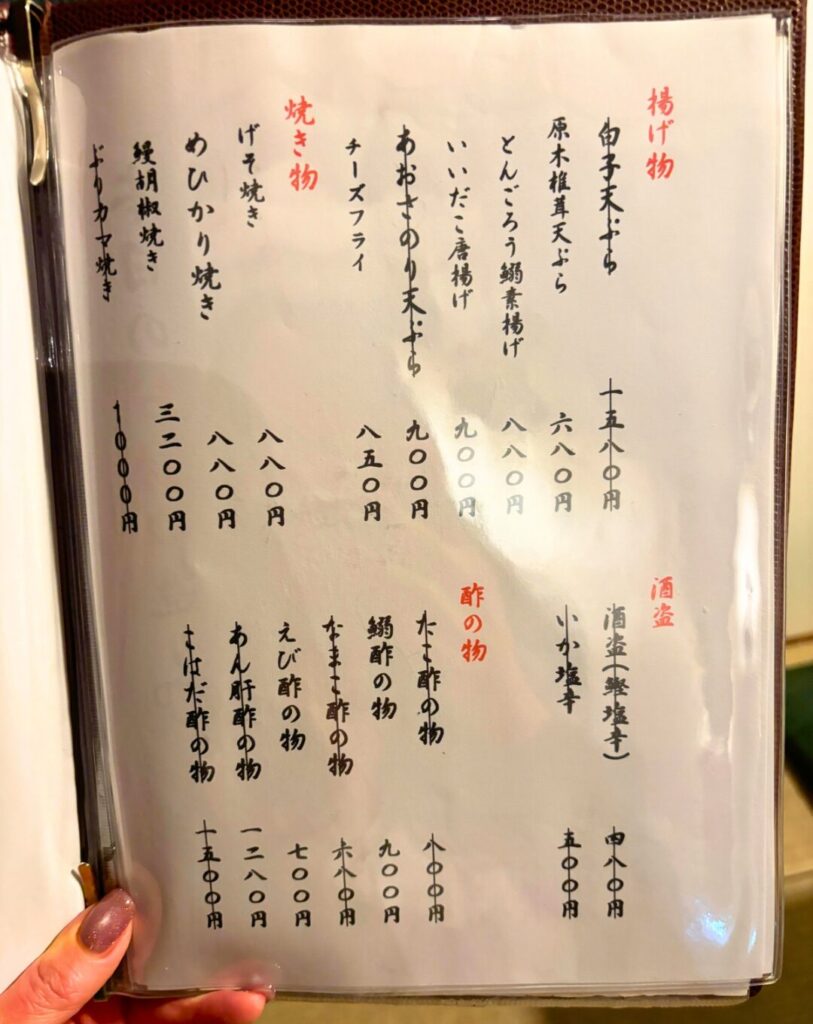 揚げ物
白子天ぷら 一五八〇円
原木椎茸天ぷら 六八〇円
とんごろう鰯素揚げ 八八〇円
いいだこ唐揚げ 九〇〇円
あおさのり天ぷら 九〇〇円
チーズフライ 八五〇円
焼き物
げそ焼き 八八〇円
めひかり焼き 八八〇円
鰻胡椒焼き 三二〇〇円
ぶりカマ焼き 1000円
酒盗
酒盗(鰹塩辛) 四八〇円
いか塩辛 五〇〇円
酢の物
たこ酢の物 八〇〇円
鰯酢の物 九〇〇円
なまこ酢の物 六八〇円
えび酢の物 七〇〇円
あん肝酢の物 一二八〇円
こはだ酢の物 一五〇〇円